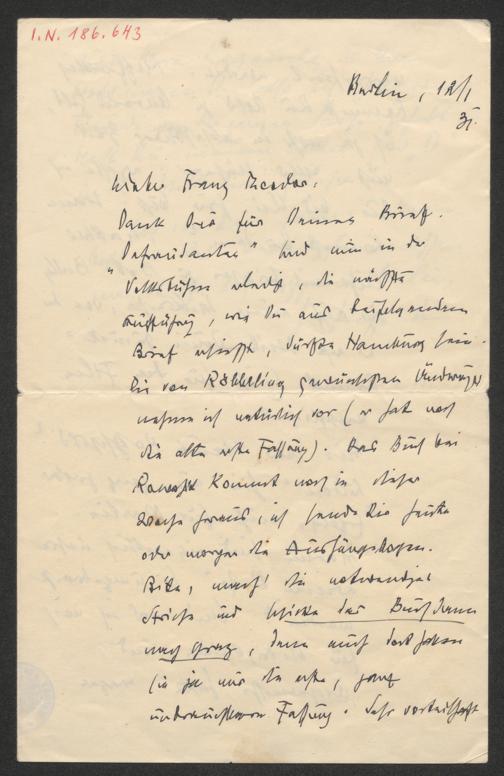 I.N. 186.643
Berlin, 12/1
31.
Lieber Franz Theodor:
Dank Dir für Deinen Brief.
"Defraudanten" sind nun in der
Volksbühne, die nächste
Aufführung, wie Du aus beifolgendem
Brief ersiehst, dürfte Hamburg sein.
Die von Röbbeling gewünschten Änderungen
nehme ich natürlich vor (er hat noch
die alte erste Fassung). Das Buch bei
Rowohlt kommt noch in dieser
Woche heraus, ich sende Dir heute
oder morgen die Aushängebogen.
Bitte, mach' die notwendigen
Striche und schicke das Buch dann
nach Graz, denn auch dort haben
sie ja nur die erste, ganz
undruckbare Fassung. Sehr vorteilhaft